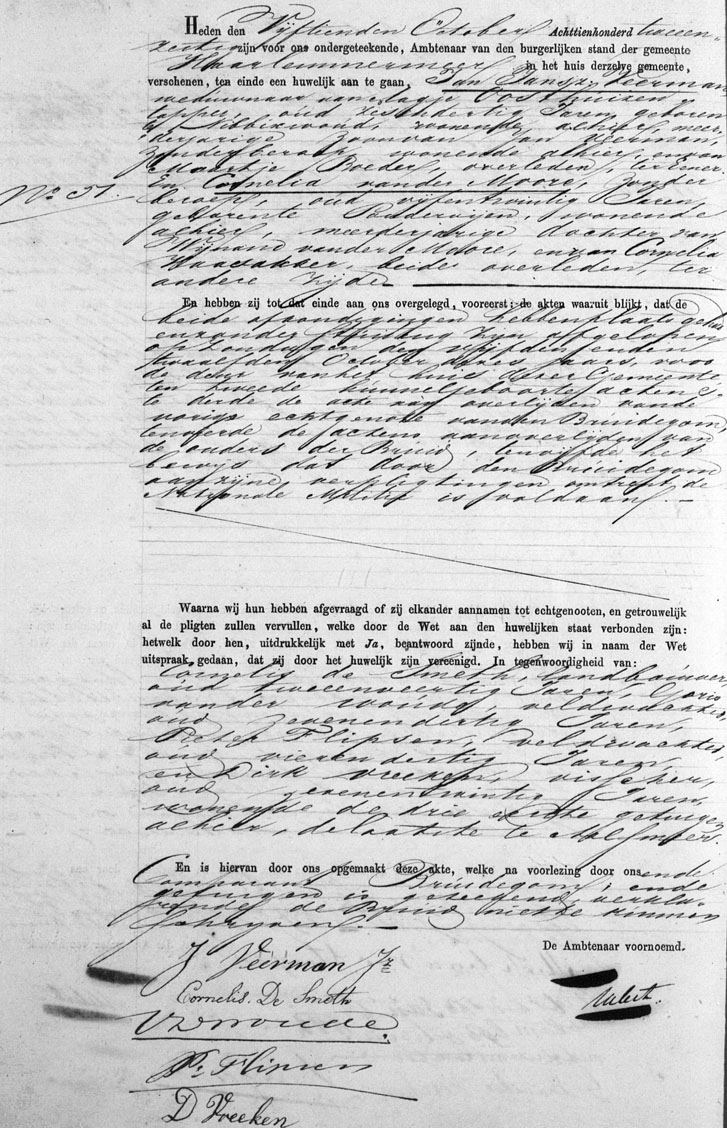 Heden den Vijftienden October Achttienhonderd tweeen-
zestig zijn voor ons ondergeteekende, Ambtenaar van den burgerlijken stand der gemeente
Haarlemmermeer in het huis derzelve gemeente,
verschenen, ten einde een huwelijk aan te gaan, Jan Jansz. Veerman
weduwnaar van Oosthuizen,
oud zesendertig Jaren, geboren
te Sibbekarspel, wonende alhier, meer
derjarige Zoon van Jan Veerman,
zonder beroep, wonende alhier, en van
Maartje Boeder, overleden, ter eener
No 51.
En Cornelia van der Moore, zonder
beroep, oud vijfentwintig Jaren,
geboren te Ouderwijen, wonende
alhier, meerderjarige dochter van
Wijnand van der Moore, en van Cornelia
beide overleden, ter
andere zijde
En hebben zij tot dat einde aan ons overgelegd, vooreerst: de akten waaruit blijkt, dat de
beide afkondigingen hebben plaats gehad
en zonder stuiting zijn afgeloopen
op Zondagen den vijfden en den
twaalfden October dezes Jaars, voor
de deur van het huis dezer Gemeente
ten tweede hunne geboorte acten,
te derde de acte van overlijden van de
vorige echtgenote van den Bruidegom,
ten vierde de actens van overlijden van
de ouders der Bruid, ten vijfde het
bewijs dat door den Bruidegom
aan zijne verpligtingen omtrent de
Nationale Militie is voldaan. —
Waarna wij hun hebben afgevraagd of zij elkander aannamen tot echtgenooten, en getrouwelijk
al de pligten zullen vervullen, welke door de Wet aan den huwelijken staat verbonden zijn:
hetwelk door hen, uitdrukkelijk met Ja, beantwoord zijnde, hebben wij in naam der Wet
uitspraak gedaan, dat zij door het huwelijk zijn vereenigd. In tegenwoordigheid van:
Cornelis de Smeth, landbouwer,
oud tweeenveertig Jaren,
van der Woude, veldwachter
oud zevenendertig Jaren,
Pieter Flipsen, veldwachter,
oud vierendertig Jaren,
en Dirk Vreeken, visscher,
oud zevenentwintig Jaren,
wonende de drie eerste getuigen
alhier, de laatste te Aalsmeer.
En is hiervan door ons opgemaakt deze akte, welke na voorlezing door ons ende
Comparant Bruidegom, ende
getuigen is geteekend, verkla-
rende de Bruid niet te kunnen
schrijven. —
De Ambtenaar voornoemd.
J Veerman Jz
Cornelis. De Smeth
VdWoude.
P. Flipsen
D Vreeken